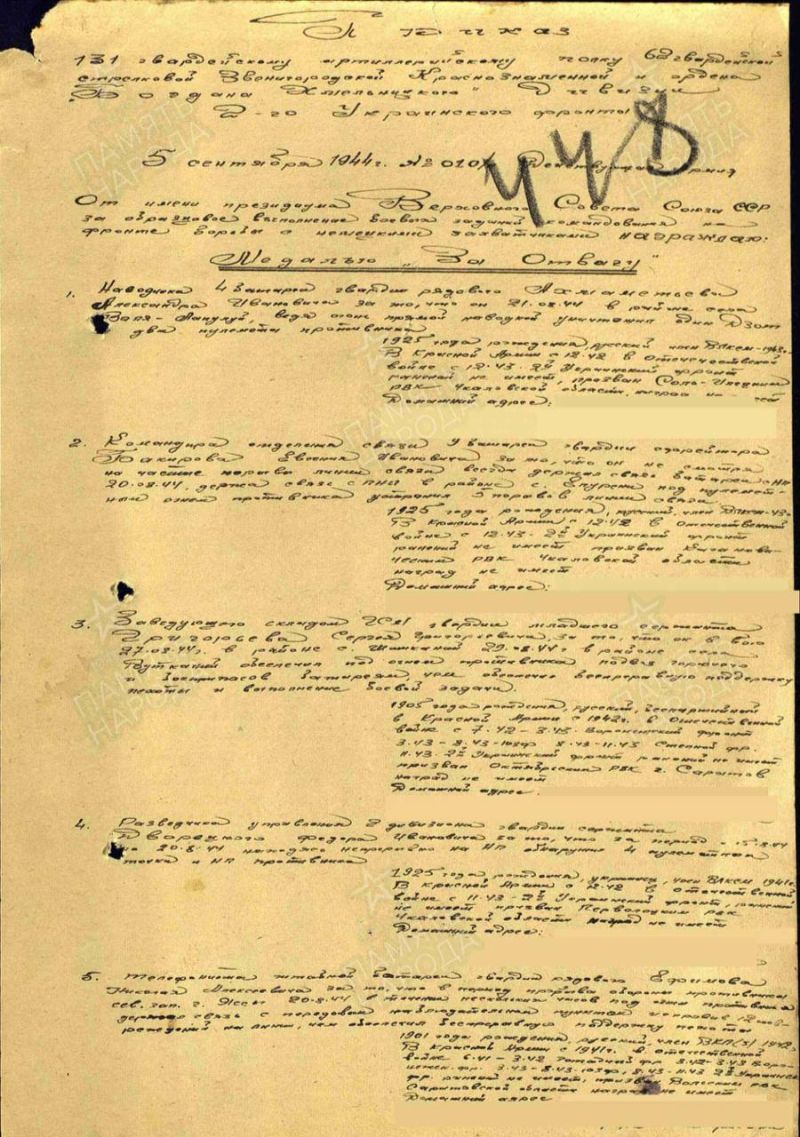 Приказ
131 гвардейскому артиллерийскому полку 62 гвардейской
стрелковой Звенигородской Краснознаменной и ордена
Богдана Хмельницкого Дивизии
2-го Украинского фронта
5 сентября 1944г. № 020/ Действующая армия
448
От имени президиума Верховного Совета Союза ССР
за образцовое выполнение боевых заданий командования на
фронте борьбы с немецкими захватчиками награждаю:
Медалью „За Отвагу"
1. Наводчика 4 батареи гвардии рядового Ахматьева
Александра Ивановича за то, что он 21.08.44 в районе села
Валя-Лапулуй, ведя огонь прямой наводкой уничтожил один Дзот
два пулемета противника
1925 года рождения, русский, член ВЛКСМ-1943г.
В Красной Армии с 12.42 в Отечественной
войне с 12.43 2й Украинский фронт
ранений не имеет, призван Соль-Илецким
РВК Чкаловской области, наград не имеет
Домашний адрес:
2. Командира отделения связи 4 батареи гвардии ефрейтора
Евгения Ивановича за то, что он не смотря
на частые порывы линии связи всегда держал связь батареи с НП
20.08.44, держа связь с ПНП в районе с. под пулемет-
ным огнем противника устранил 5 порывов линии связи
1925 года рождения, русский, член ВЛКСМ-43г.
В Красной Армии с 12.42 в Отечественной
войне с 12.43- 2й Украинский фронт
ранений не имеет призван
РВК Чкаловской области
наград не имеет
Домашний адрес:
3. Заведующего складом гвардии младшего сержанта
Григорьева Сергея Григорьевича, за то, что он в бою
27.08.44г. в районе с. 29.08.44г в районе села
обеспечил под огнем противника подвоз горючего
и боеприпасов батареям, чем обеспечил беспрерывную поддержку
пехоты и выполнение боевой задачи.
1905 года рождения, русский, беспартийный
в Красной Армии с 1942г. в Отечественной
войне с 7.42 - 3.43 Воронежский фронт
3.43 - 8.43- 8.43-11.43 Степной фр.
11.43 2й Украинский фронт ранений не имеет
призван Октябрьским РВК г. Саратов
наград не имеет
Домашний адрес.
4. Разведчика управления 2 дивизиона гвардии сержанта
Дворецкого Федора Ивановича за то, что за период с 15.8.44
по 20.8.44 находясь непрерывно на НП обнаружил 4 пулеметных
точки и НП противника
1925 года рождения, украинец, член ВЛКСМ 1941г.
В Красной Армии с 12.42 в Отечественной
войне с 11.43- 2й Украинский фронт, ранений
не имеет призван РВК
Чкаловской области наград не имеет
Домашний адрес:
5. Телефониста штабной батареи гвардии рядового Ефимова
Николая Алексеевича за то, что в период прорыва обороны противника
сев. зап. г. Яссы 20.8.44 в течении нескольких часов под огнем противника
держал связь с передовым наблюдательным пунктом исправив 12
повреждений на линии, чем обеспечил беспрерывную поддержку пехоты
1901 года рождения, русский, член ВКП(б) 1942г.
В Красной Армии с 1941г. в Отечественной
войне 6.41 - 3.42 Западный фр. 3.42-3.43 Воро-
нежск. фр. 3.43-8.43 8.43-11.43 2й Украинск.
фр. ранений не имеет, призван Вольским РВК
Саратовской области наград не имеет
Домашний адрес
ПАМЯТЬ НАРОДА